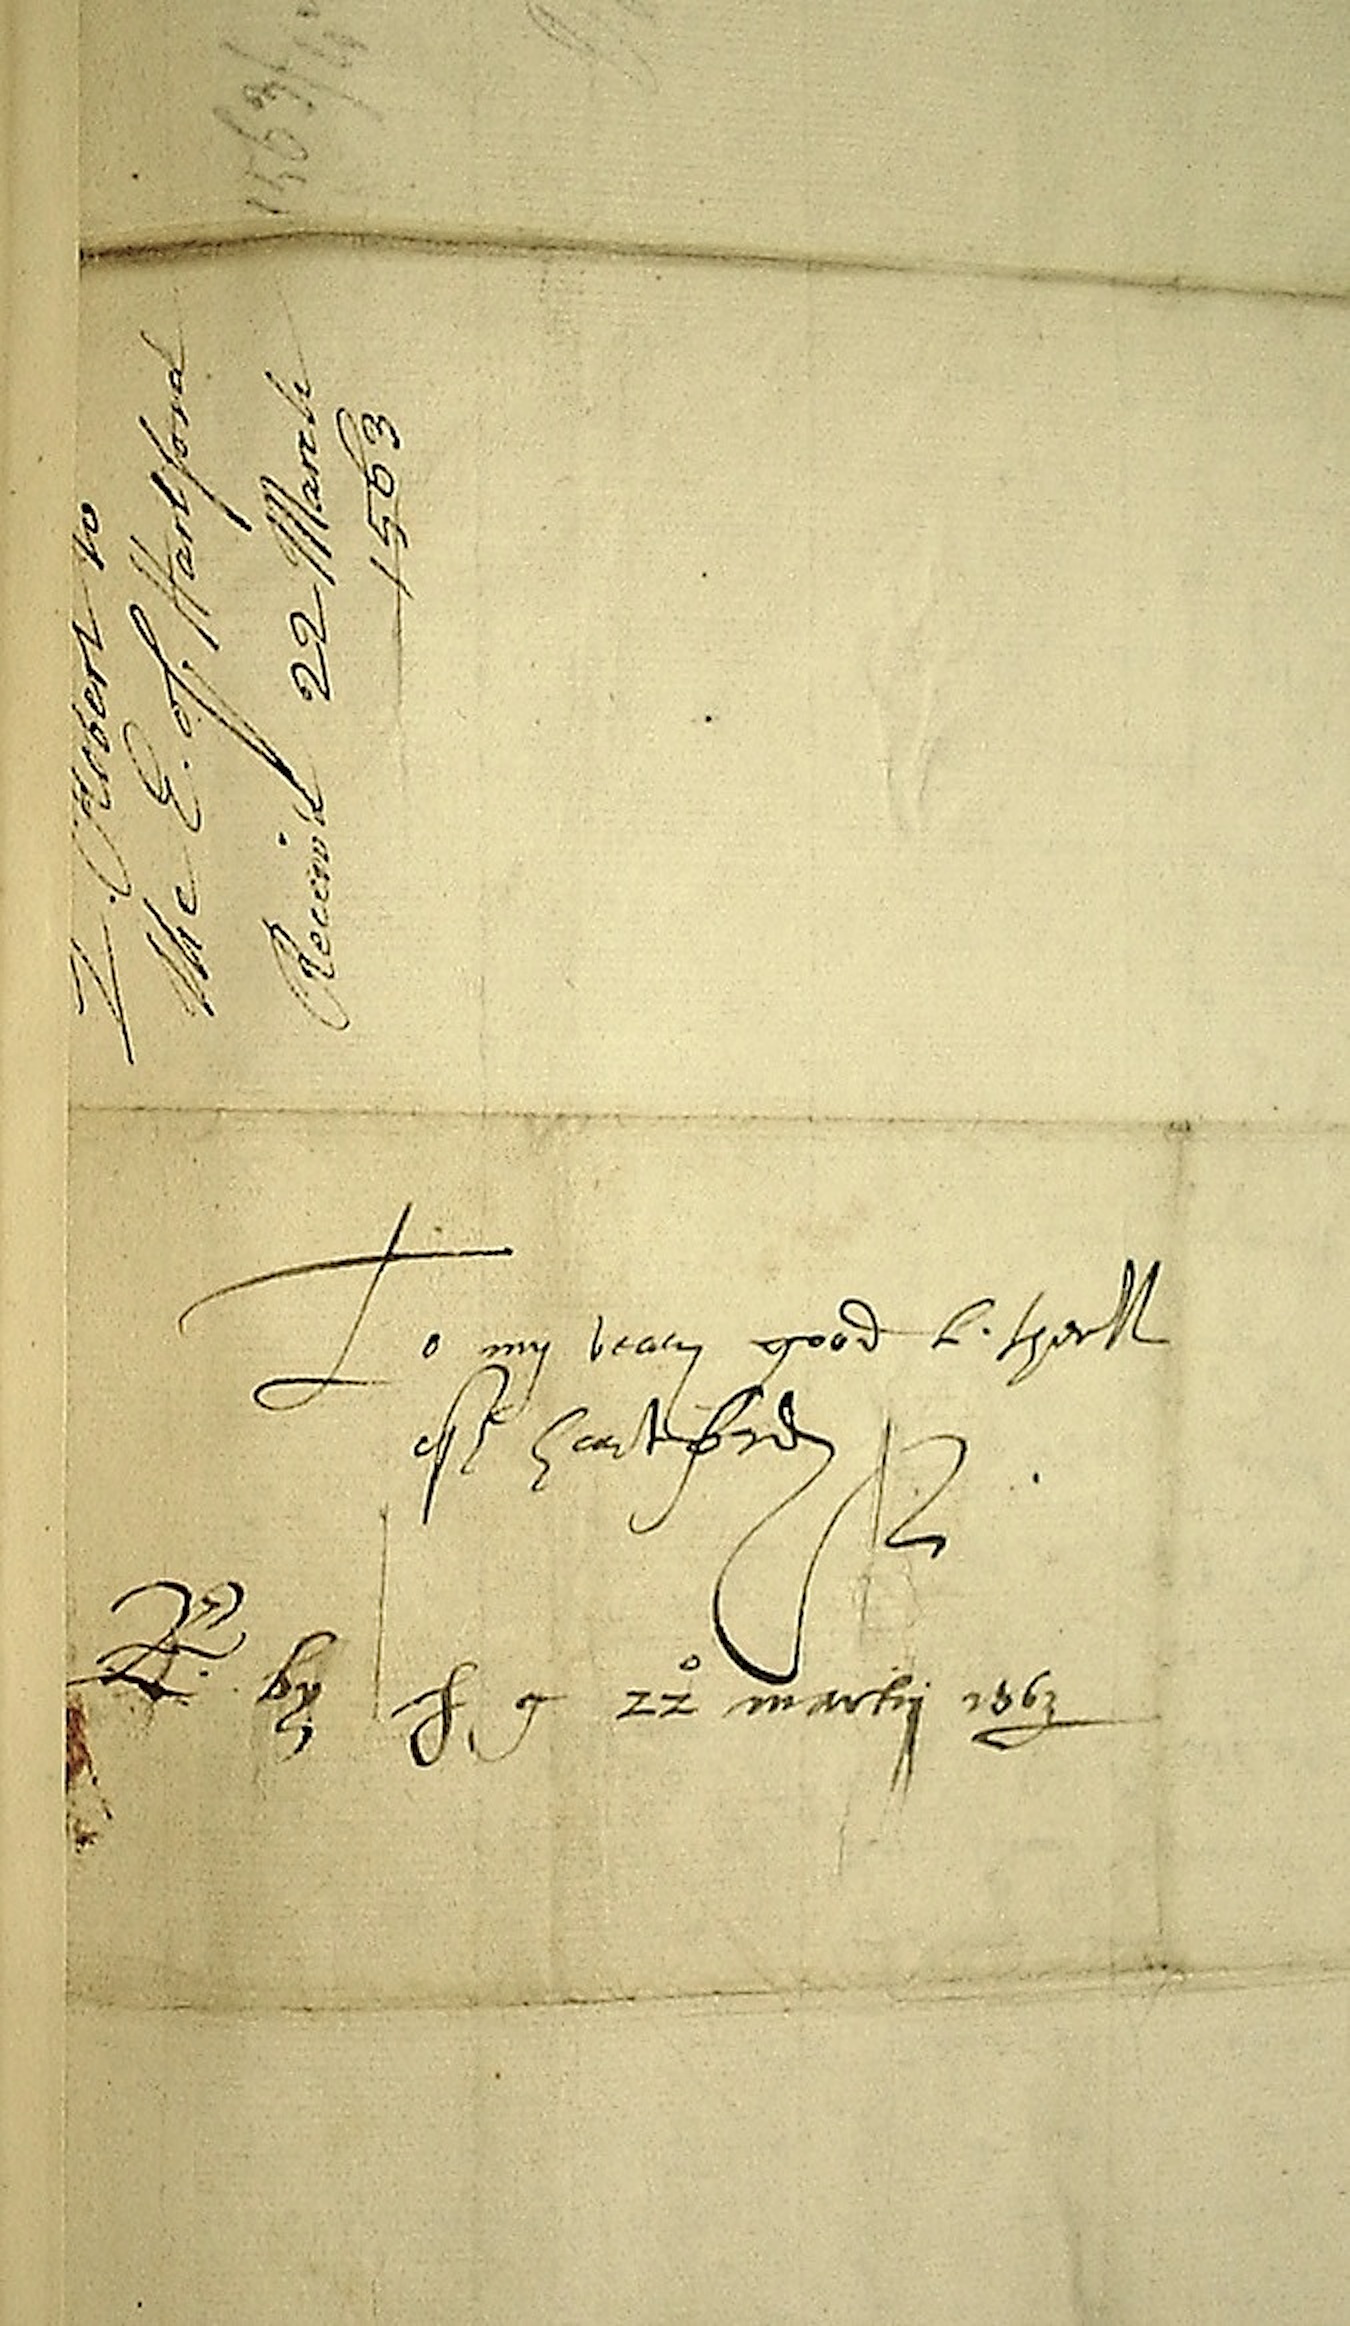 1563/4
L. Robert to
the E. of Hartford
Receiv'd 22 March
1563
To my veary good L. therll
of hertford
by 22° martij 1563